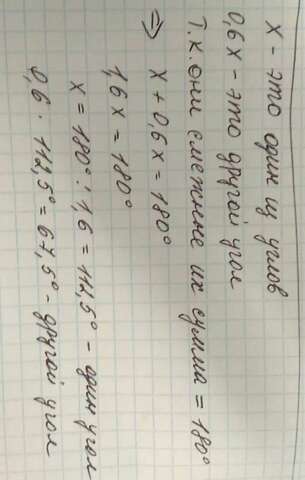 х - это один из углов
0,6х - это другой угол
Т.к. они смежные их сумма = 180°
⇒ х + 0,6х = 180°
1,6х = 180°
х = 180° : 1,6 = 112,5° - один угол
0,6 · 112,5° = 67,5° - другой угол